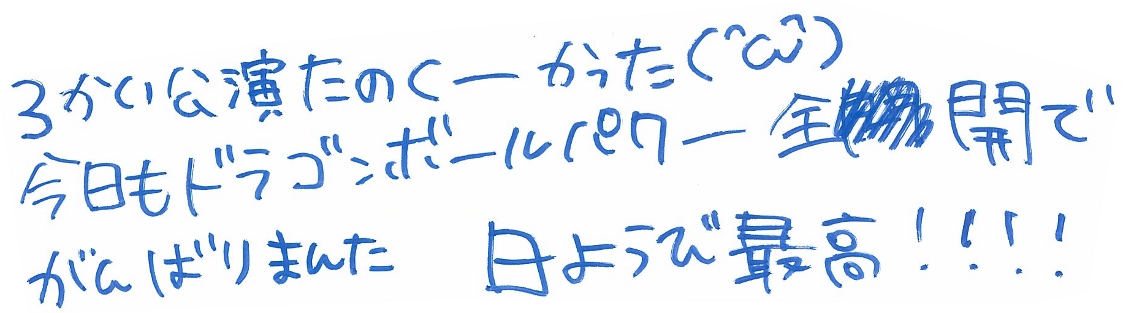 3かい公演たのくーかった(^ω^)
今日もドラゴンボールパワー全開で
がんばりまんた 日ようび最高!!!!